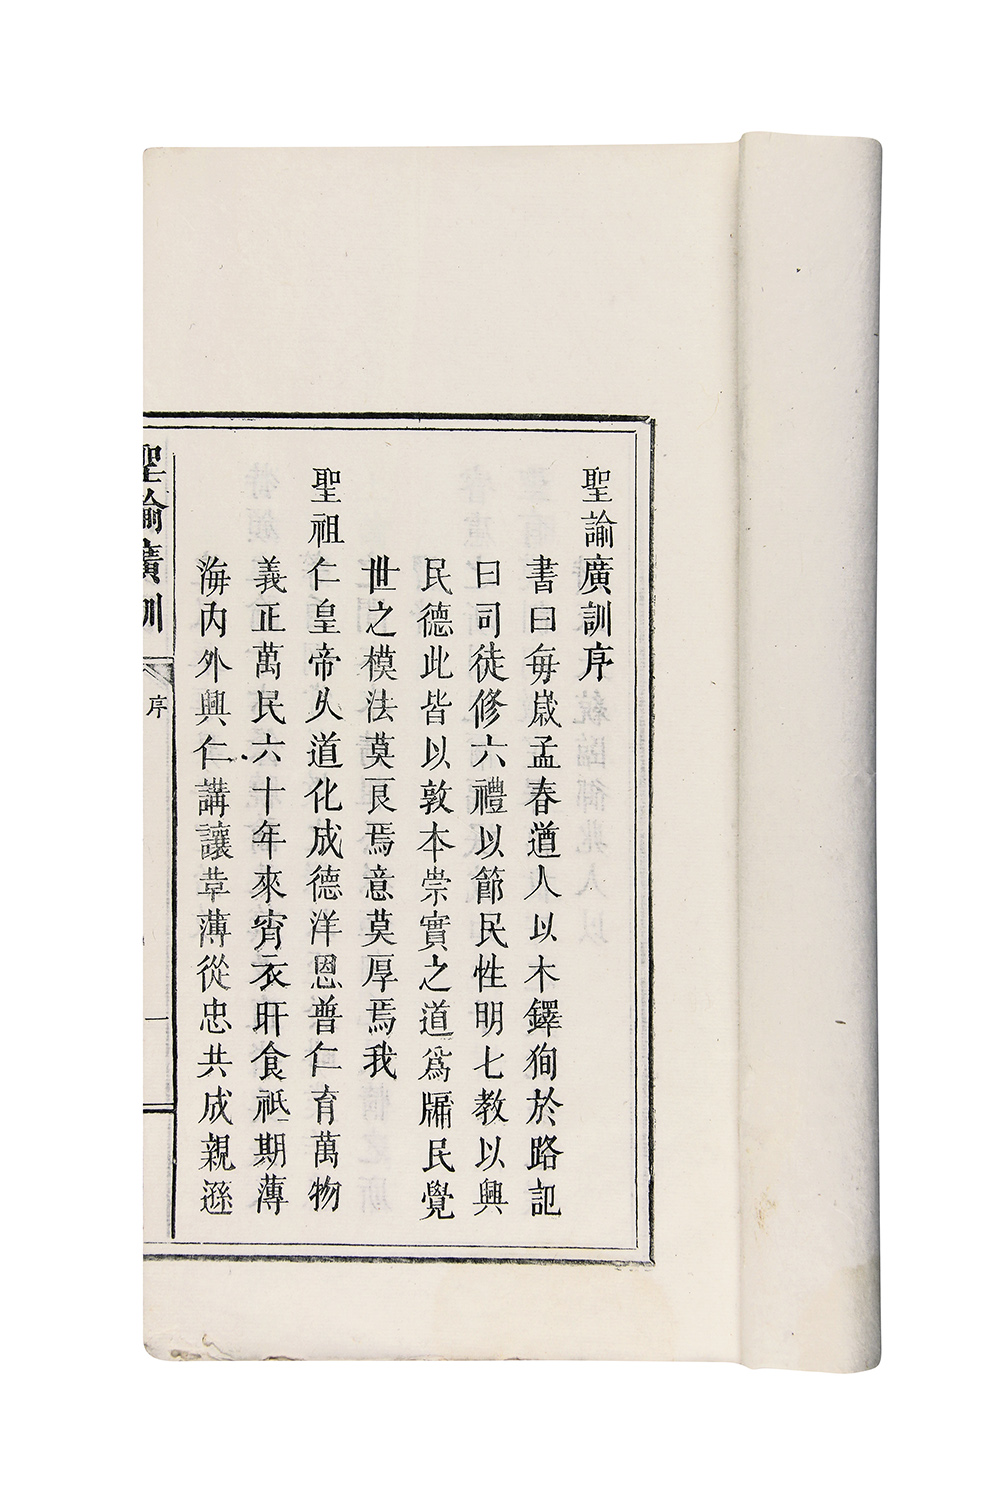 聖諭廣訓序
書曰每歲孟春遒人以木鐸狥於路記
曰司徒修六禮以節民性明七教以興
民德此皆以敦本崇實之道爲牖民覺
世之模法莫良焉意莫厚焉我
聖祖仁皇帝久道化成德洋恩普仁育萬物
義正萬民六十年來宵衣旰食祗期薄
海內外興仁講讓革薄從忠共成親遜
聖諭廣訓
序
一